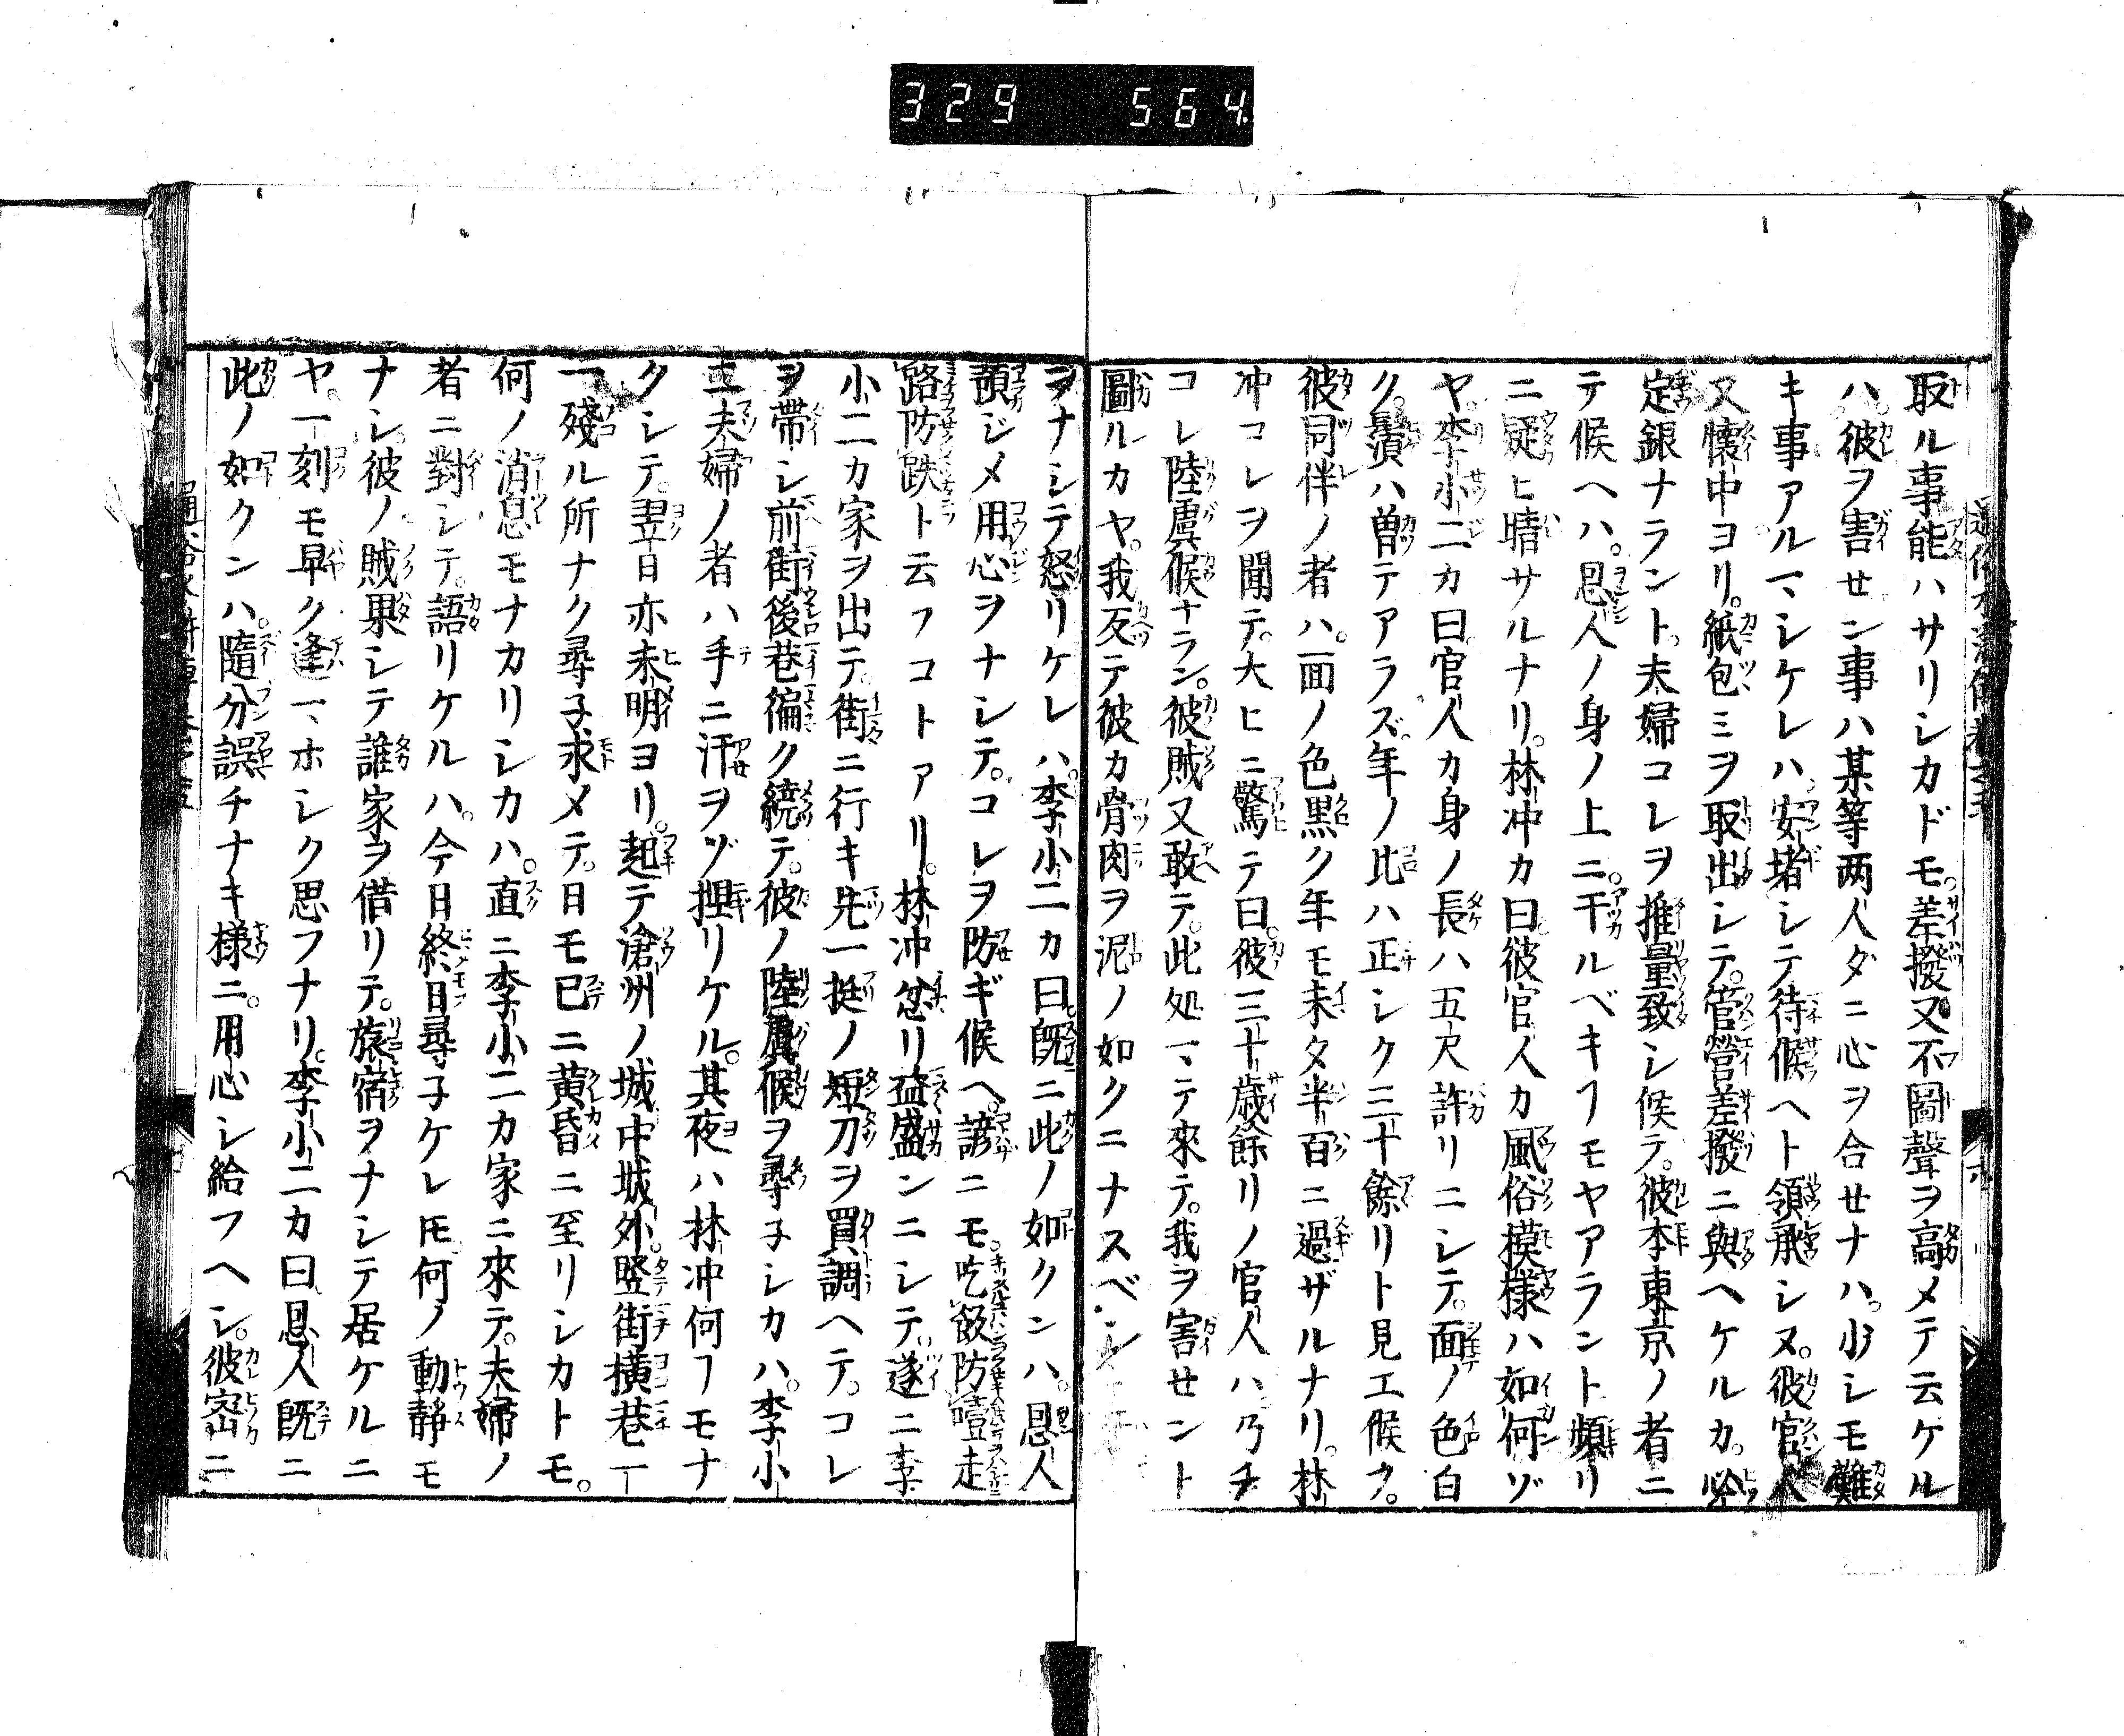 329 564
取ル事能ハサリシカドモ。差撥又不圖聲ヲ高メテ云ケル
ハ。彼ヲ害セン事ハ某等两人ダニ心ヲ合セナハ。少シモ難
キ事アルマシケレハ。安堵シテ待候ヘト領承シヌ。彼官人
又懐中ヨリ。紙包ミヲ取出シテ。管營差撥ニ與ヘケルカ。必
定銀ナラント。夫婦コレヲ推量致シ候テ。彼本東京ノ者ニ
テ候ヘハ。恩人ノ身ノ上ニ。干ルベキヿモヤアラント頻リ
ニ疑ヒ晴サルナリ。林冲カ曰彼官人カ風俗模様ハ如何ゾ
ヤ。李小二カ曰官人カ身ノ長ハ五尺許リニシテ。面ノ色白
ク。鬚ハ曽テアラズ。年ノ比ハ正シク三十餘リト見エ候フ。
彼同伴ノ者ハ。面ノ色黒ク年モ未タ半百ニ過ザルナリ。林
冲コレヲ聞テ。大ヒニ驚テ曰。彼三十歳餘リノ官人ハ乃チ
コレ陸虞候ナラン。彼賊又敢テ。此処マテ來テ。我ヲ害セント
圖ルカヤ。我反テ彼カ骨肉ヲ泥ノ如クニナスベシ
ヲナシテ怒リケレハ。李小二カ曰。既ニ此ノ如クンハ。恩人
預ジメ用心ヲナシテ。コレヲ防ギ候ヘ。諺ニモ。吃飯防噎走
路防跌ト云フコトアリ。林冲忿リ益盛ンニシテ。遂ニ李
小二カ家ヲ出テ。街ニ行キ先一挺ノ短刀ヲ買調ヘテ。コレ
ヲ帯シ前街後巷徧ク繞テ。彼ノ陸虞候ヲ尋子シカハ。李小
二夫婦ノ者ハ手ニ汗ヲゾ捏リケル。其夜ハ林冲何ヿモナ
クシテ。翌日亦未明ヨリ。起テ滄洲ノ城中城外。竪街横巷一
一殘ル所ナク尋子求メテ。日モ已ニ黄昏ニ至リシカトモ。
何ノ消息モナカリシカハ。直ニ李小二カ家ニ來テ。夫婦ノ
者ニ對シテ。語リケルハ。今日終日尋子ケレ𪜈何ノ動静モ
ナシ彼ノ賊果シテ誰家ヲ借リテ。旅宿ヲナシテ居ケルニ
ヤ。一刻モ早ク逢マホシク思フナリ。李小二カ曰恩人既ニ
此ノ如クンハ。隨分誤チナキ様ニ。用心シ給フヘシ。彼密ニ